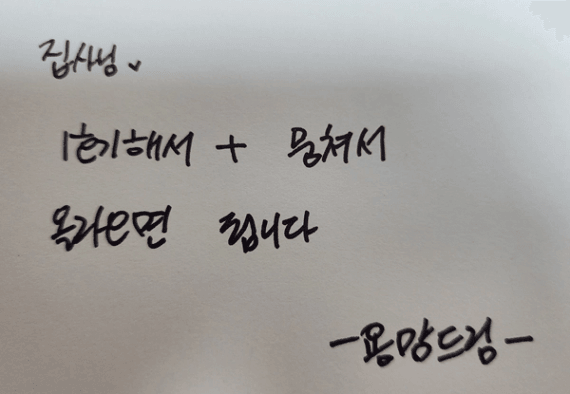 집사님
합해서 + 뭉쳐서
올라오면 됩니다
-용망드림-